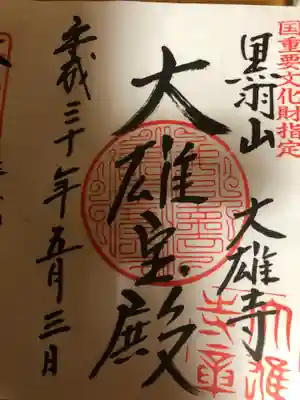 国重要文化財指定
黒羽山
大雄寺
大雄宝殿
平成三十年五月三日